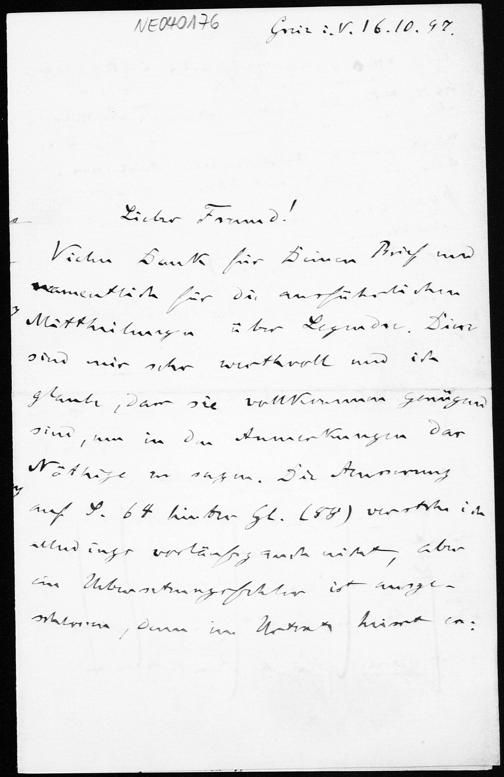 NE040176
Greiz i. V. 16.10.97.
Lieber Freund!
Vielen Dank für Deinen Brief und
namentlich für die ausführlichen
Mittheilungen über Legendre. Diese
sind mir sehr werthvoll und ich
glaube, dass sie vollkommen genügend
sind, um in den Anmerkungen das
Nöthige zu sagen. Die Äusserung
auf S. 64 hinter Gl. (58) verstehe ich
allerdings vorläufig auch nicht, aber
ein Uebersetzungsfehler ist ausge-
schlossen, denn im Urtext heisst es: